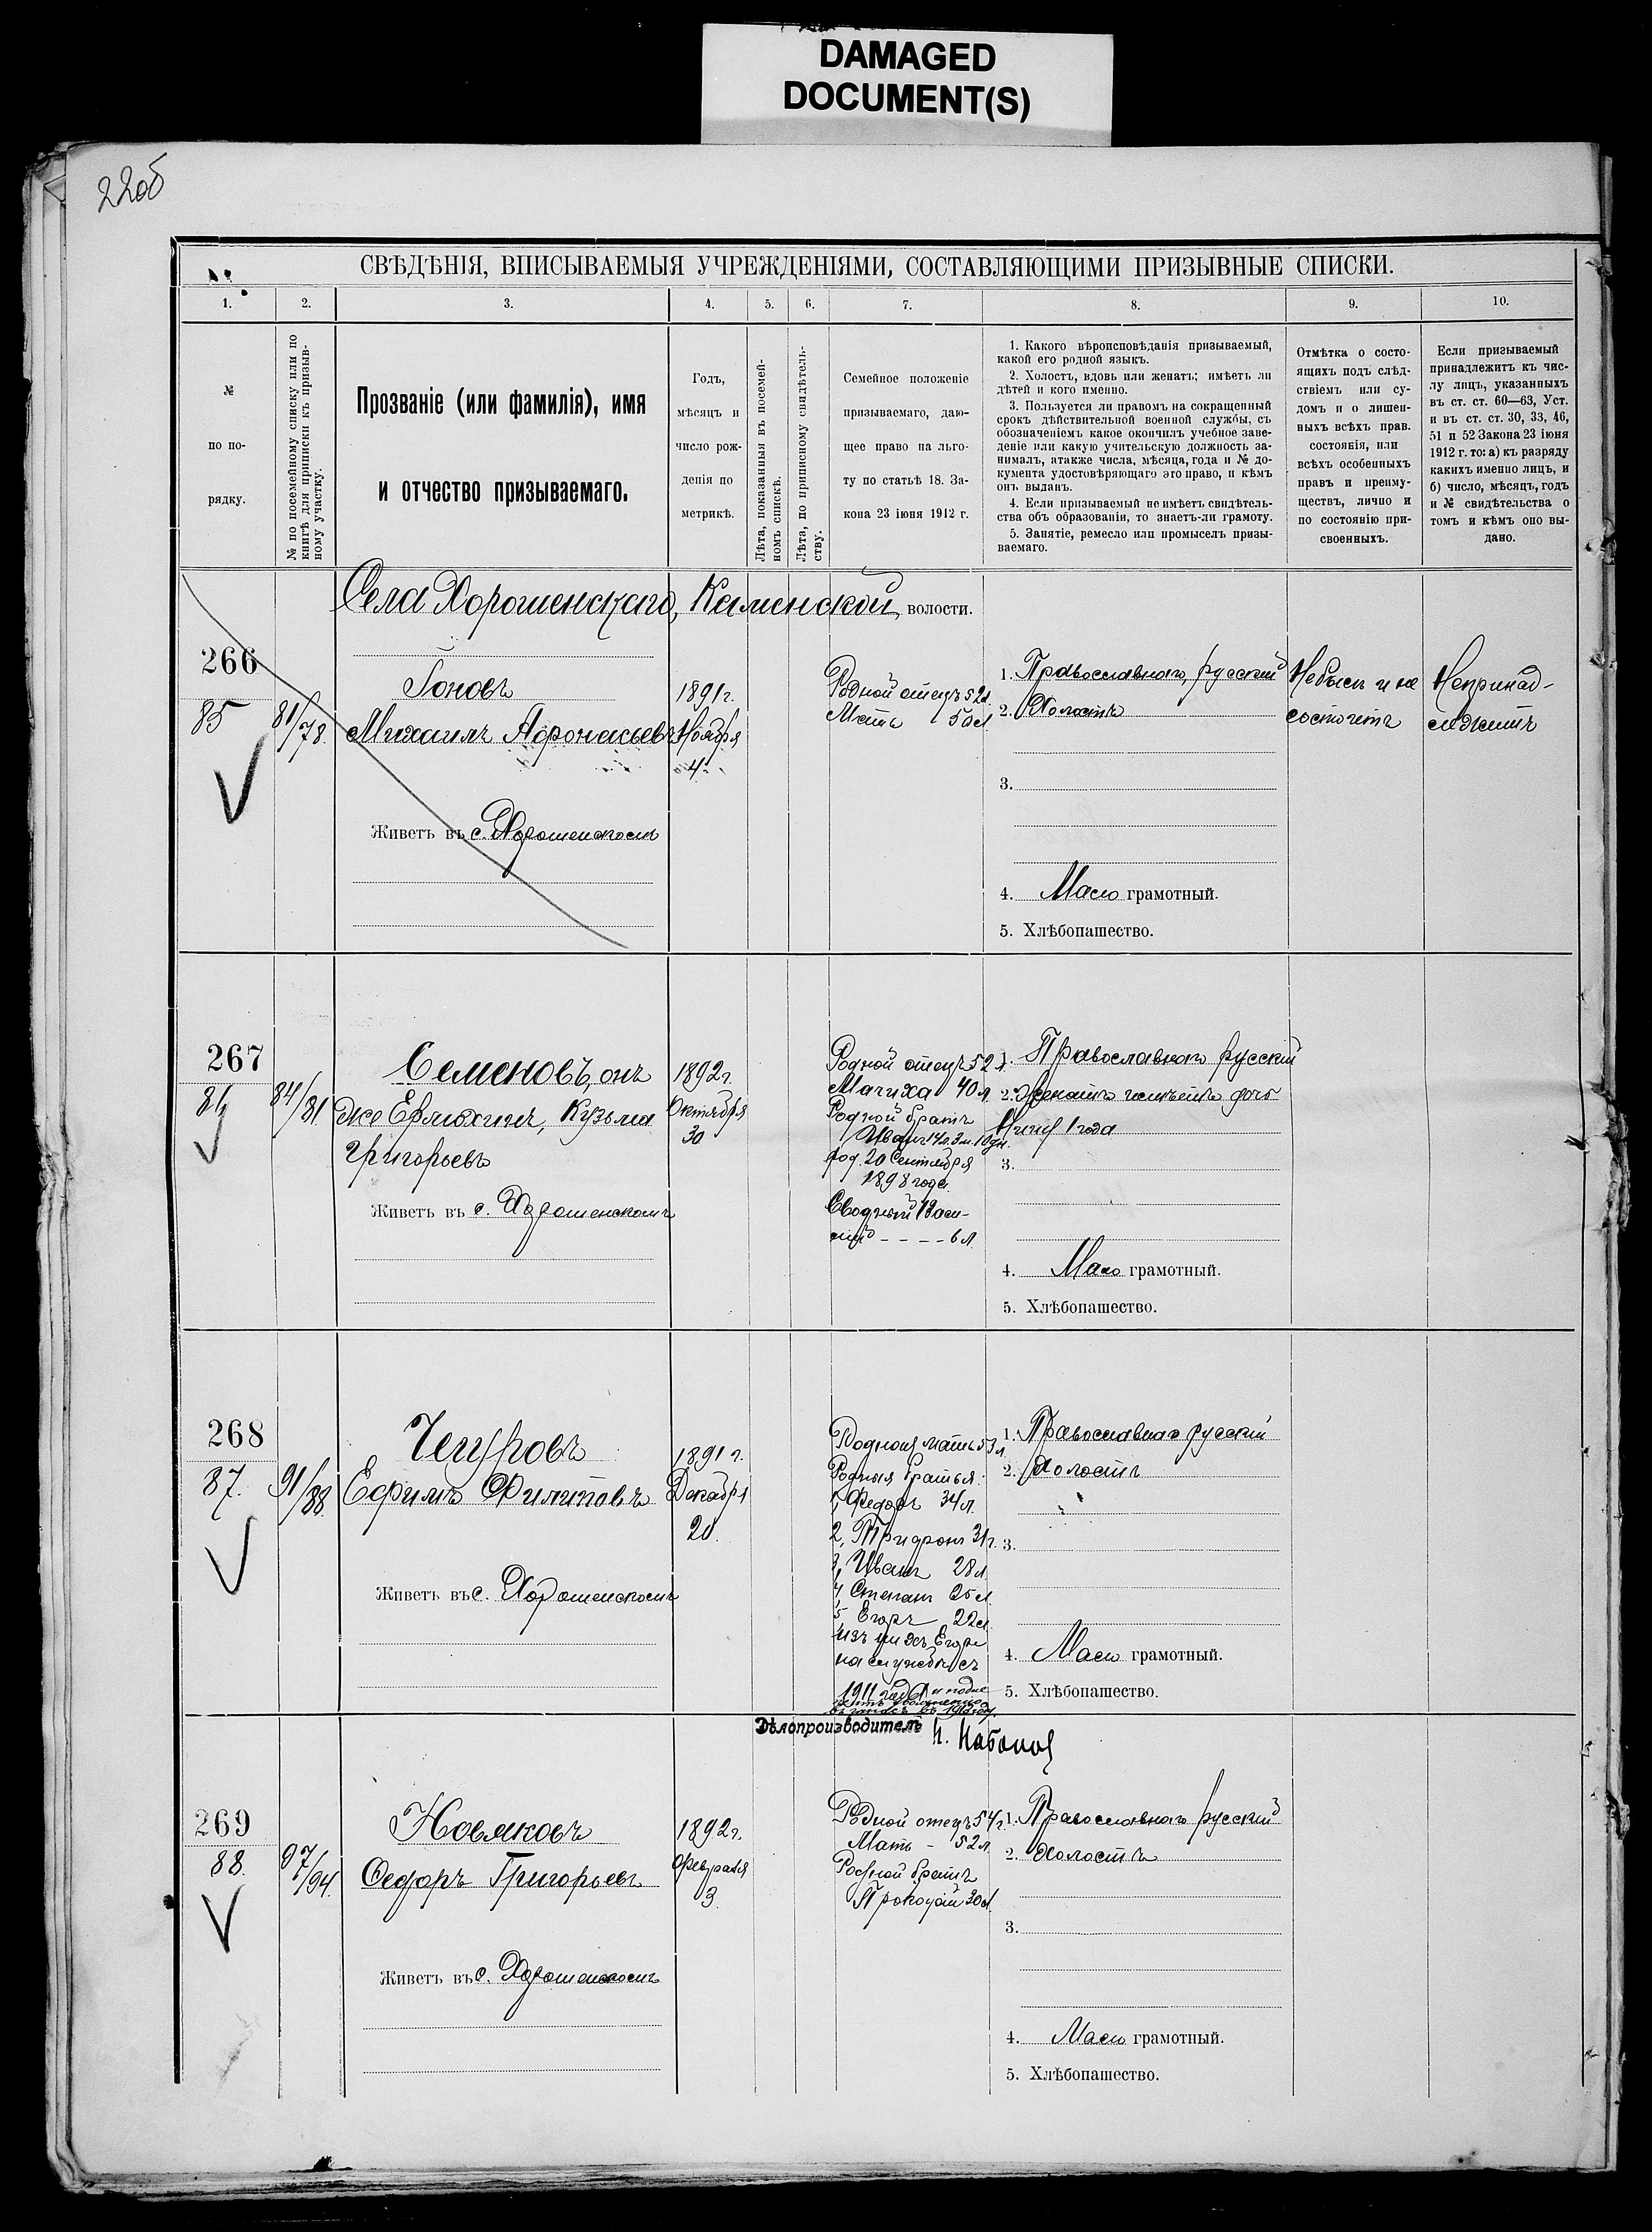 DAMAGED
DOCUMENT(S)
22об
СВѢДѢНІЯ, ВПИСЫВАЕМЫЯ УЧРЕЖДЕНІЯМИ, СОСТАВЛЯЮЩИМИ ПРИЗЫВНЫЕ СПИСКИ.
1. 2. 3. 4. 5. 6. 7. 8. 9. 10.
№
по по-
рядку.
№ по посемейному списку или по
книгѣ для приписки къ призыв-
ному участку.
Прозваніе (или фамилія), имя
и отчество призываемаго.
Годъ,
мѣсяцъ и
число рож-
денія по
метрикѣ.
Лѣта, показанныя въ посемей-
номъ спискѣ.
Лѣта, по приписному свидѣтель-
ству.
Семейное положеніе
призываемаго, даю-
щее право на льго-
ту по статьѣ 18. За-
кона 23 іюня 1912 г.
1. Какого вѣроисповѣданія призываемый,
какой его родной языкъ.
2. Холостъ, вдовъ или женатъ; имѣетъ ли
дѣтей и кого именно.
3. Пользуется ли правомъ на сокращенный
срокъ дѣйствительной военной службы, съ
обозначеніемъ какое окончилъ учебное заве-
деніе или какую учительскую должность за-
нималъ, атакже числа, мѣсяца, года и № до-
кумента удостовѣряющаго это право, и кѣмъ
онъ выданъ.
4. Если призываемый не имѣетъ свидѣтель-
ства объ образованіи, то знаетъ-ли грамоту.
5. Занятіе, ремесло или промыселъ призы-
ваемаго.
Отмѣтка о состо-
ящихъ подъ слѣд-
ствіемъ или су-
домъ и о лишен-
ныхъ всѣхъ прав.
состоянія, или
всѣхъ особенныхъ
правъ и преиму-
ществъ, лично и
по состоянію при-
своенныхъ.
Если призываемый
принадлежитъ къ чис-
лу лицъ, указанныхъ
въ ст. ст. 60—63, Уст.
и въ ст. ст. 30, 33, 46,
51 и 52 Закона 23 іюня
1912 г. то: а) къ разряду
какихъ именно лицъ, и
б) число, мѣсяцъ, годъ
и № свидѣтельства о
томъ и кѣмъ оно вы-
дано.
Села Хорошенскаго, Каменской волости.
266
85
81/78.
Гоновъ
Михаилъ Афонасьевъ
Живетъ въ с. Хорошенскомъ
1891 г.
Ноября
4
Родной отецъ 52л.
Мать 50л
1. Православнаго, русскій
2. Холостъ
3.
4. Мало грамотный.
5. Хлѣбопашество.
Небылъ и не
состоитъ
Непринад-
лежитъ
267
86
84/81
Семеновъ, онъ
же Ермохинъ, Кузьма
Григорьевъ
Живетъ въ с. Хорошенскомъ
1892 г.
Октября
30
Родной отецъ 52 л.
Мачиха 40 л.
Родной братъ
Иванъ 14л. 3м. 10дн.
род. 20 Сентября
1898 года.
Сводный Васи-
лій - - - - 6 л.
1. Православнаго русскій
2. Женатъ имѣетъ дочь
1 года
3.
4. Мало грамотный.
5. Хлѣбопашество.
268
87.
91/88.
Чепуровъ
Ефимъ Филиповъ
Живетъ въ с. Хорошенскомъ
1891 г.
Декабря
20.
Родная мать 53 л
Родныя братья:
1, Федоръ 34 л.
2, Трифонъ 31 г.
3, Иванъ 28 л
4, Степанъ 25 л.
5 Егоръ 22 л
изъ нихъ Егоръ
на службѣ съ
1911 года
въ запасъ въ 1910 году.
1. Православнаго русскій
2. Холостъ
3.
4. Мало грамотный.
5. Хлѣбопашество.
Дѣлопроизводитель
269
88.
97/94.
Новиковъ
Федоръ Григорьевъ
Живетъ въ с. Хорошенскомъ
1892 г.
Февраля
3.
Родной отецъ 54 г.
Мать - 52 л
Родной братъ
Прокофій 30 л.
1. Православнаго русскій
2. Холостъ
3.
4. Мало грамотный.
5. Хлѣбопашество.